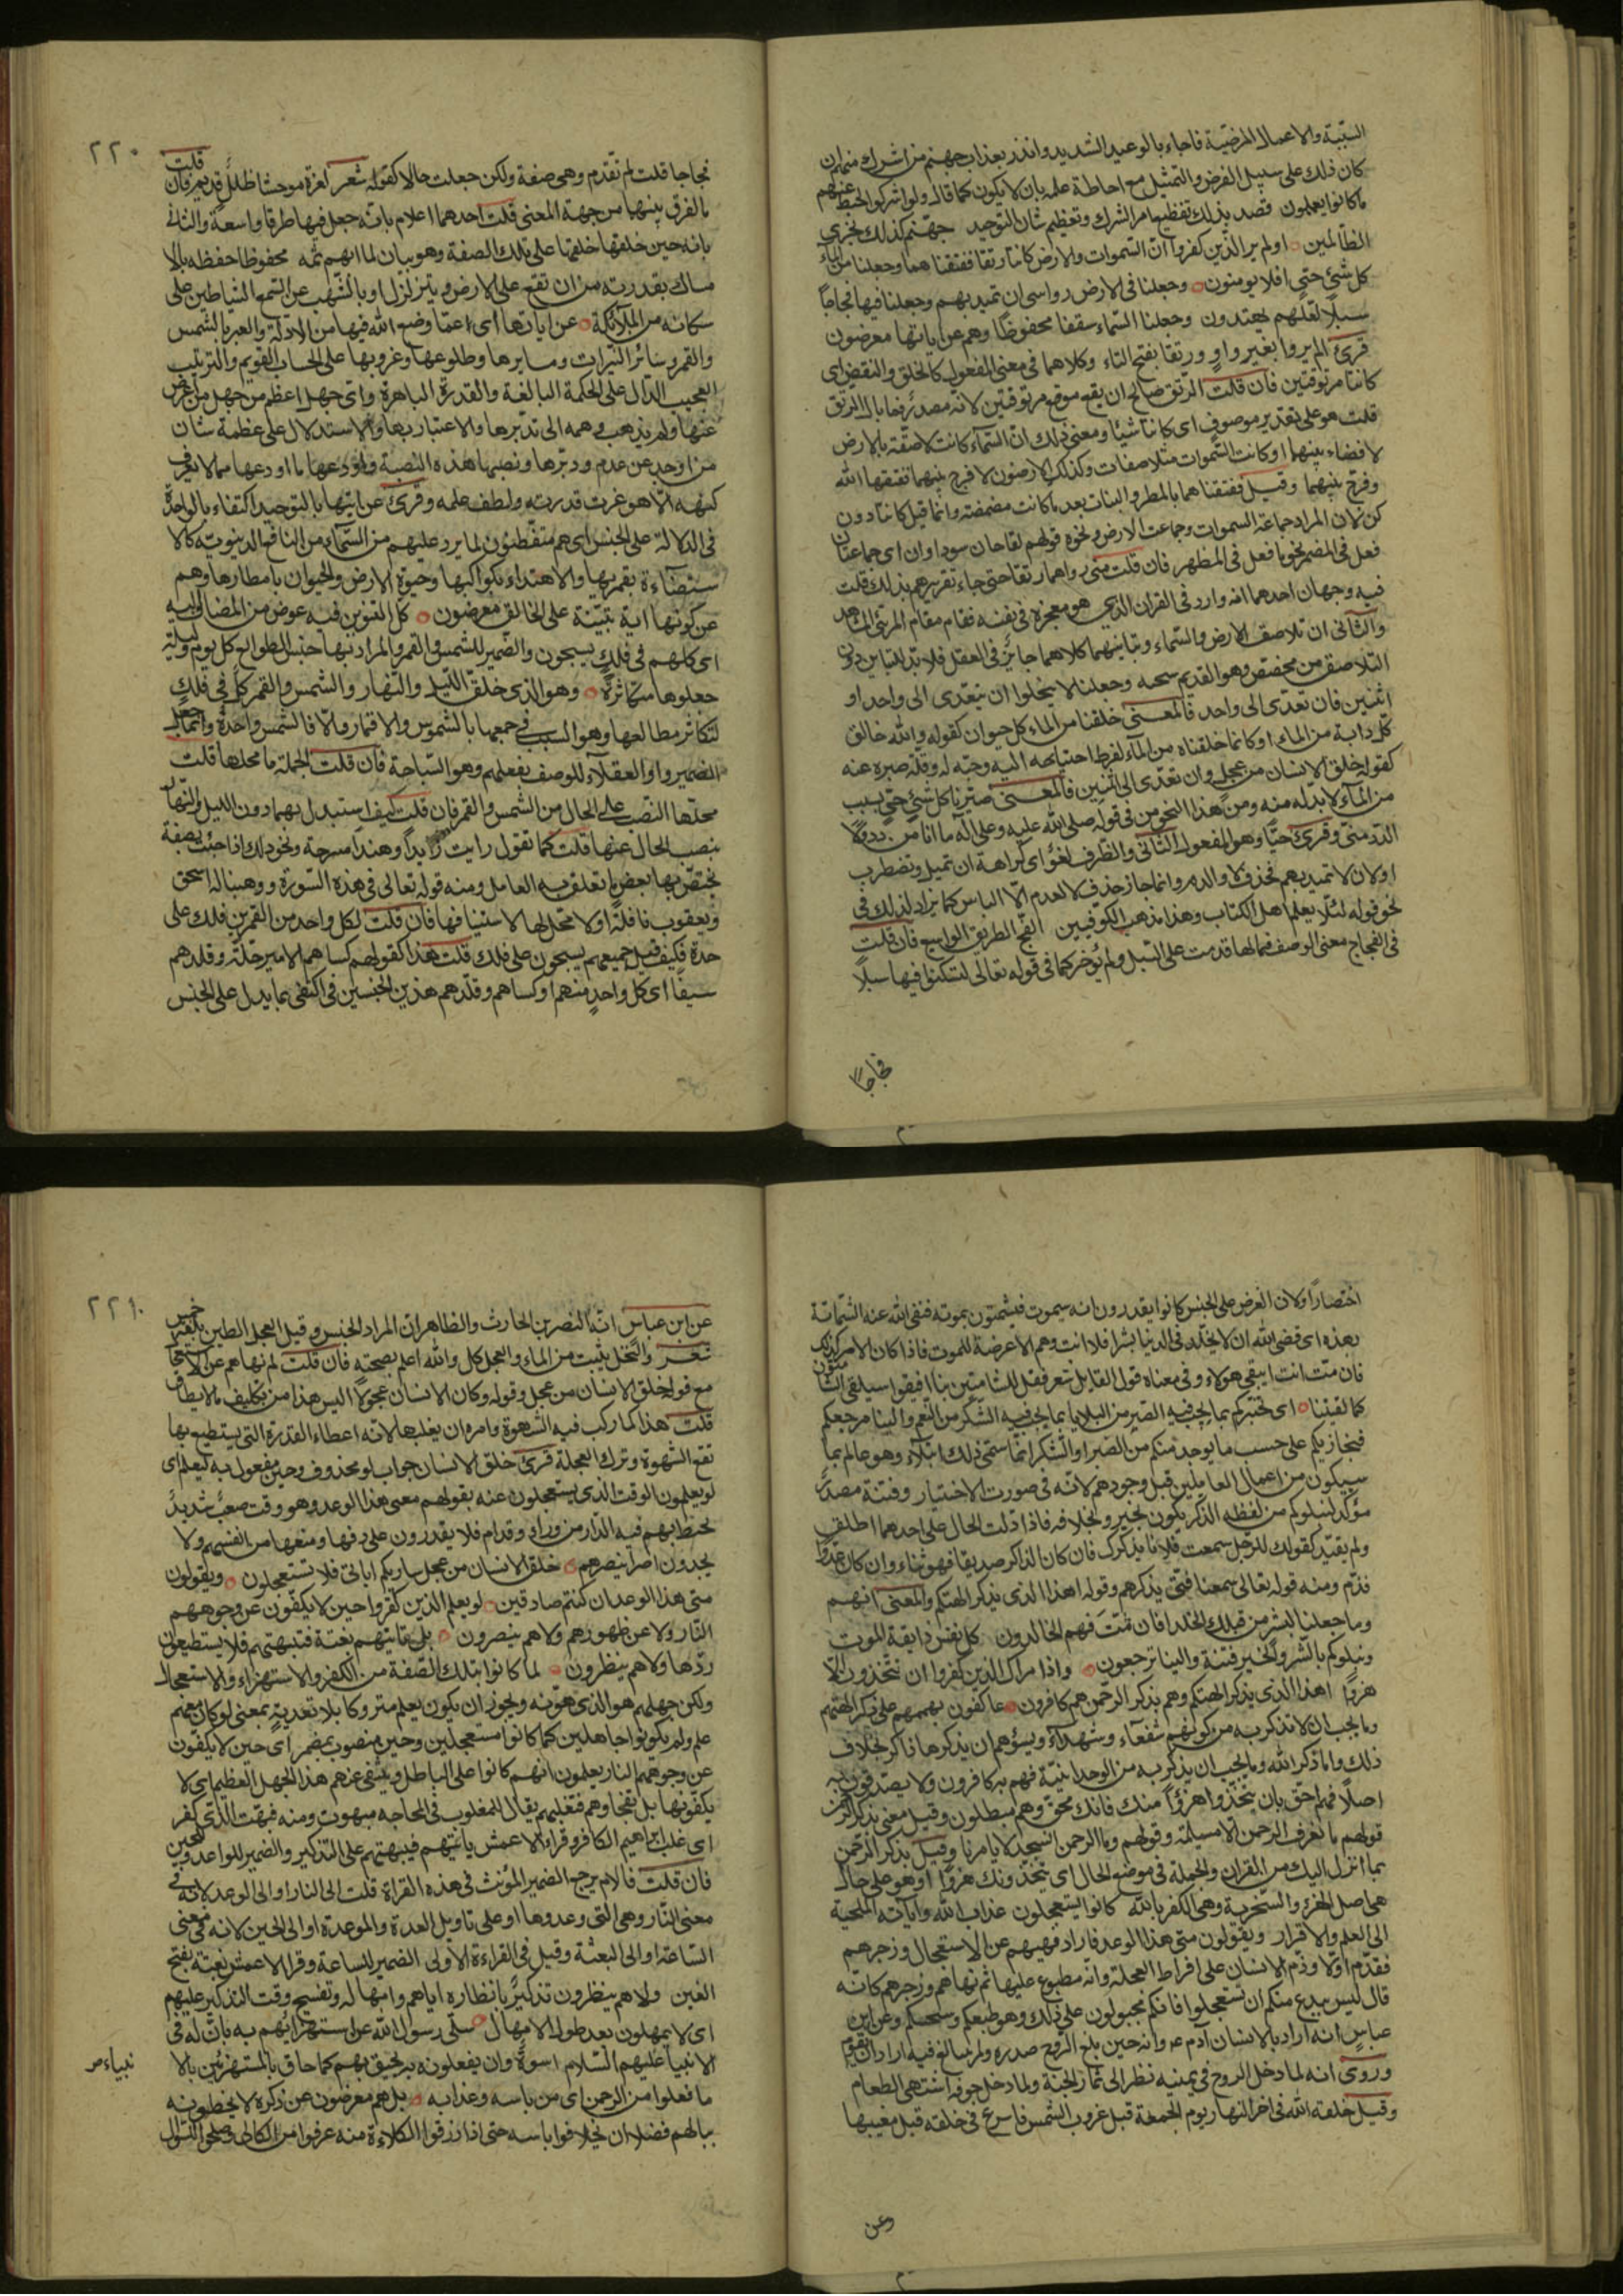 السنية والاعمال المرضية فاجاء بالوعيد الشديد وانذر بعذاب جهنم من اشرك منهم ان
كان ذلك على سبيل الفرض والتمثيل مع احاطة علمه بان لا يكون كما قال ولو اشركوا لحبط عنهم
ما كانوا يعملون قصد بذلك تفظيع امر الشرك وتعظيم شان التوحيد جهنم كذلك نجزي
الظالمين اولم ير الذين كفروا ان السموات والارض كانتا رتقا ففتقناهما وجعلنا من الماء
كل شيء حتى افلا يومنون وجعلنا في الارض رواسي ان تميد بهم وجعلنا فيها فجاجا
سبلا لعلهم يهتدون وجعلنا السماء سقفا محفوظا وهم عن اياتها معرضون
قرئ الم يروا بغير واو ورتقا بفتح التاء وكلاهما في معنى المفعول كالخلق والنقض اى
كانتا مرتوقتين فان قلت الرتق صالح ان يقع موقع مرتوقتين لانه مصدر فما بال الرتق
قلت هو على تقدير موصوف اى كانتا شيئا ومعنى ذلك ان السماء كانت لاصقة بالارض
لا فضاء بينهما او كانت السموات متلاصقات وكذلك الارضون لا فرج بينهما ففتقها الله
وفرج بينهما وقيل ففتقناهما بالمطر والنبات بعد ما كانت مصمته وانما قيل كانتا دون
كن لان المراد جماعة السموات وجماعت الارض ونحوه قولهم لقاحان سوداوان اى جماعتان
فعل في المضمر نحو ما فعل في المظهر فان قلت متى راوهما رتقا حتى جاء تقريرهم بذلك قلت
فيه وجهان احدهما انه وارد في القران الذي هو معجزة في نفسه فقام مقام المرئي المشاهد
والثاني ان تلاصق الارض والسماء وتباينهما كلاهما جائز في العقل فلا بد للتباين دون
التلاصق من مخصص وهو القديم سبحه وجعلنا لا يخلوا ان يتعدى الى واحد او
اثنين فان تعدى الى واحد فالمعنى خلقنا من الماء كل حيوان كقوله والله خالق
كل دابة من الماء او كانما خلقناه من الماء لفرط احتياجه اليه وحبه له وقلة صبره عنه
كقوله خلق الانسان من عجل وان تعدى الى اثنين فالمعنى صيرنا كل شيء حي بسبب
من الماء لا بد له منه ومن هذا النحو من في قوله صلى الله عليه وعلى آله ما انا من دد ولا
الدد مني وقرئ حيا وهو المفعول الثاني والظرف لغو اى كراهة ان تميل وتضطرب
او لان لا تميد بهم فحذف لا واللام وانما جاز حذف لا لعدم الا الباس كما يزاد لذلك في
نحو قوله لئلا يعلم اهل الكتاب وهذا مذهب الكوفيين الفج الطريق الواسع فان قلت
في الفجاج معنى الوصف فما لها قدمت على السبل ولم تؤخر كما في قوله تعالى لتسلكوا فيها سبلا
فجاجا
٢٢٠
فجاجا قلت لم تقدم وهى صفة ولكن جعلت حالا كقوله شعر لعزة موحشا طلل قديم فان قلت
ما الفرق بينهما من جهة المعنى قلت احدهما اعلام بانه جعل فيها طرقا واسعة والثاني
بانه حين خلقها خلقها على تلك الصفة وهو بيان لما ابهم ثمه محفوظا حفظه بالا
مساك بقدرته من ان تقع على الارض ويتزلزل او بالشهب عن السمع الشياطين على
سكانه من الملائكة عن اياتها اى عما وضع الله فيها من الادلة والعبر بالشمس
والقمر وسائر النيرات ومسايرها وطلوعها وغروبها على الحساب القويم والترتيب
العجيب الدال على الحكمة البالغة والقدرة الباهرة واى جهل اعظم من جهل من اعرض
عنها ولم يذهب وهمه الى تدبرها والاعتبار بها والاستدلال على عظمة شان
من اوجد عن عدم ودبرها ونصبها هذه النصبة واودعها ما اودعها مما لا يعرف
كنهه الا هو عزت قدرته ولطف علمه وقرئ عن ايتها بالتوحيد اكتفاء بالواحدة
في الدلالة على الجنس اى هم متفطنون لما يرد عليهم من السماء من المنافع الدنيوية كالا
ستضاءة بقمريها والاهتداء بكواكبها وحيوة الارض والحيوان بامطارها وهم
عن كونها اية بينة على الخالق معرضون كل التنوين فيه عوض من المضاف اليه
اى كلهم في فلك يسبحون والضمير للشمس والقمر والمراد بهما جنس الطوالع كل يوم وليلة
جعلوها متكاثرة وهو الذي خلق الليل والنهار والشمس والقمر كل في فلك
لتكاثر مطالعها وهو السبب في جمعها بالشموس والاقمار والا فالشمس واحدة وانما جعل
الضمير واو العقلاء للوصف بفعلهم وهو السباحة فان قلت الجملة ما محلها قلت
محلها النصب على الحال من الشمس والقمر فان قلت كيف استبدل بهما دون الليل والنهار
بنصب الحال عنها قلت كما تقول رايت زيدا وهندا متبرجة ونحو ذلك اذا جئت بصفة
يختص بها بعض ما تعلق به العامل ومنه قوله تعالى في هذه السورة ووهبنا له اسحق
ويعقوب نافلة اولا محل لها لاستينافها فان قلت لكل واحد من القمرين فلك على
حدة فكيف قيل جميعهم يسبحون على فلك قلت هذا كقولهم كساهم الامير حلة وقلدهم
سيفا اى كل واحد منهم او كساهم وقلدهم هذين الجنسين فاكتفى بما يدل على الجنس
اختصارا ولان الغرض على الجنس كانوا يقدرون انه سيموت فيشمتون بموته فنفى الله عنه الشماتة
بهذه اى قضى الله ان لا يخلد في الدنيا بشرا فلا انت وهم الا عرضة للموت فاذا كان الامر كذلك
فان مت انت ايبقى هولاء وفي معناه قول القايل شعر فقل للشامتين بنا افيقوا سيلقى الشامتون
كما لقينا اى نختبركم بما يجب فيه الصبر من البلايا بما يجب فيه الشكر من النعم والينا مرجعكم
فنجازيكم على حسب ما يوجد منكم من الصبر او الشكر انما سمى ذلك ابتلاء وهو عالم بما
سيكون من اعمال العاملين قبل وجودهم لانه في صورت الاختيار وفتنة مصدر
مؤكد لنبلوكم من لفظه الذكر يكون بخير وبخلافه فاذا دلت الحال على احدهما اطلق
ولم يقيد كقولك للرجل سمعت فلانا يذكرك فان كان الذاكر صديقا فهو ثناء وان كان عدوا
فذم ومنه قوله تعالى سمعنا فتى يذكرهم وقوله اهذا الذي يذكر الهتكم والمعنى انهم
وما جعلنا لبشر من قبلك الخلد افان مت فهم الخالدون كل نفس ذايقة الموت
ونبلوكم بالشر والخير فتنة والينا ترجعون واذا راك الذين كفروا ان يتخذون الا
هزوا اهذا الذي يذكر الهتكم وهم بذكر الرحمن هم كافرون عاكفون بهممهم على ذكر الهتهم
وما يجب ان لا تذكر به من كونهم شفعاء وشهداء ويسؤهم ان يذكرها ذاكر بخلاف
ذلك واما ذكر الله وما يجب ان يذكر به من الوحدانية فهم به كافرون ولا يصدقون به
اصلا فهم احق بان يتخذوا هزوا منك فانك محق وهم مبطلون وقيل معنى بذكر الرحمن
قولهم ما نعرف الرحمن الا مسيلمة وقولهم وما الرحمن انسجد لما يامرنا وقيل بذكر الرحمن
بما انزل اليك من القران والجملة في موضع الحال اى يتخذونك هزوا او هو على حال
هى اصل الهزء والسخرية وهى الكفر بالله كانوا يستعجلون عذاب الله واياته الملجية
الى العلم والاقرار ويقولون متى هذا الوعد فاراد نهيهم عن الاستعجال وزجرهم
فقدم اولا وذم الانسان على افراط العجلة وانه مطبوع عليها ثم نهاهم وزجرهم كانه
قال ليس ببدع منكم ان تستعجلوا فانكم مجبولون على ذلك وهو طبعكم وسجيتكم وعن ابن
عباس انه اراد بالانسان آدم عم وانه حين بلغ الروح صدره ولم يتبالغ فيه اراد ان يقوم
وروى انه لما دخل الروح في عينيه نظر الى ثمار الجنة ولما دخل جوفه اشتهى الطعام
وقيل خلقه الله في اخر النهار يوم الجمعة قبل غروب الشمس فاسرع في خلقه قبل مغيبها
وعن
٢٢١
عن ابن عباس انه النضر بن الحارث والظاهر ان المراد الجنس وقيل العجل الطين بلغة حمير
شعر والنخل ينبت من الماء والعجل كل والله اعلم بصحته فان قلت لم نهاهم عن الاستعجال
مع قوله خلق الانسان من عجل وقوله وكان الانسان عجولا اليس هذا من تكليف ما لا يطاق
قلت هذا كما ركب فيه الشهوة وامره ان يغلبها لانه اعطاء القدرة التي يستطيع بها
قمع الشهوة وترك العجلة قرئ خلق الانسان جواب لو محذوف وحين مفعول به ليعلم اى
لو يعلمون الوقت الذي يستعجلون عنه بقولهم متى هذا الوعد وهو وقت صعب شديد
تحيط بهم فيه النار من وراء وقدام فلا يقدرون على دفعها ومنعها من انفسهم ولا
يجدون ناصرا ينصرهم خلق الانسان من عجل ساريكم اياتى فلا تستعجلون ويقولون
متى هذا الوعد ان كنتم صادقين لو يعلم الذين كفروا حين لا يكفون عن وجوههم
النار ولا عن ظهورهم ولا هم ينصرون بل تاتيهم بغتة فتبهتهم فلا يستطيعون
ردها ولا هم ينظرون لما كانوا بتلك الصفة من الكفر والاستهزاء والاستعجال
ولكن جهلهم هو الذي هونه ويجوز ان يكون يعلم متروكا بلا تعدية بمعنى لو كان معهم
علم ولم يكونوا جاهلين كما كانوا مستعجلين وحين منصوب بمضمر اى حين لا يكفون
عن وجوههم النار يعلمون انهم كانوا على الباطل وينتفى عنهم هذا الجهل العظيم اى لا
يكفونها بل تفجاوهم فتغلبهم يقال للمغلوب في المحاجه مبهوت ومنه فبهت الذي كفر
اى غلب ابراهيم الكافر وقراء الاعمش ياتيهم فيبهتهم على التذكير والضمير للوعد وللحين
فان قلت فالام يرجع الضمير المؤنث في هذه القراة قلت الى النار او الى الوعد لانه في
معنى النار وهى التي وعدوها او على تاويل العدة والموعدة او الى الحين لانه في معنى
الساعة او الى البعثة وقيل في القراءة الاولى الضمير للساعة وقرا الاعمش بغتة بفتح
الغين ولا هم ينظرون تذكير بانظاره اياهم وامهاله وتفسيح وقت التذكير عليهم
اى لا يمهلون بعد طول الامهال سلى رسول الله عن استهزائهم به بان له في
الانبيا عليهم السلام اسوة وان يفعلونه به يحيق بهم كما حاق بالمستهزئين بالا
نبياء م
ما فعلوا من الرحمن اى من باسه وعذابه بل هم معرضون عن ذكره لا يخطرونه
ببالهم فضلا ان يخافوا باسه حتى اذا رزقوا الكلاءة منه عرفوا من الكالى وصلحوا للسؤال